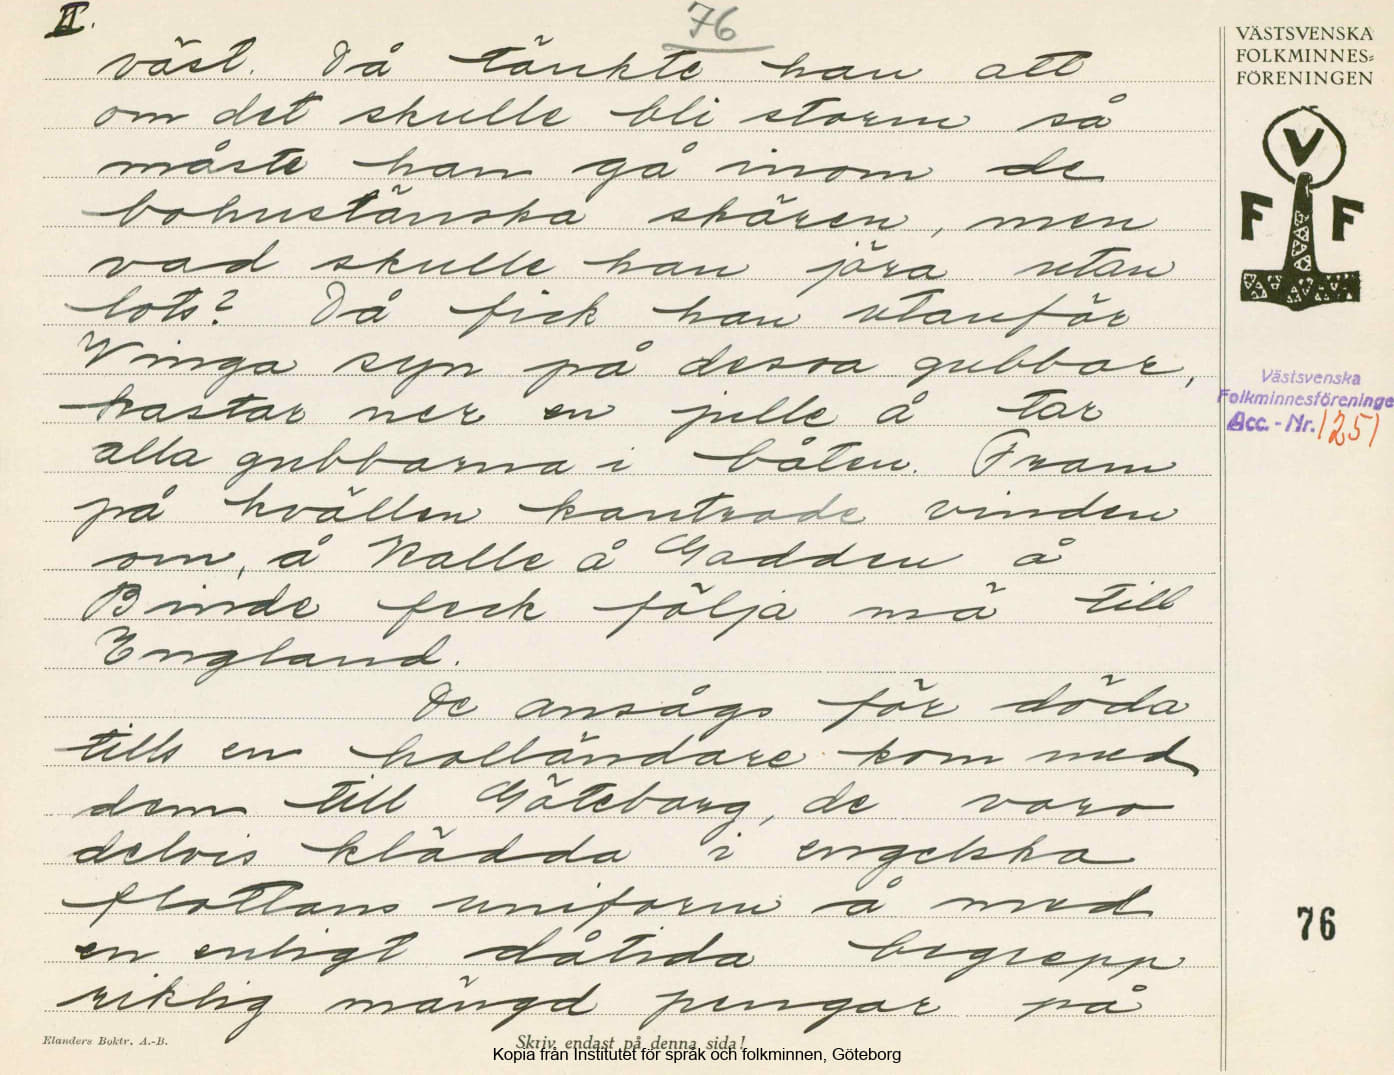 II.
76
väst. Då tänkte han att
om det skulle bli storm så
måste han gå inom de
bohuslänska skären, men
vad skulle han jöra utan
lots? Då fick han utanför
Vinga syn på dessa gubbar,
hastar ner en julle å tar
alla gubbarna i båten. Fram
på hvällen kantrade vinden
om, å Kalle å Gadden å
Binde feck följa mä till
England.
De ansågs för döda
tills en holländare kom med
dem till Göteborg, de voro
delvis klädda i engelska
flottans uniform å med
en enligt dåtida begrepp
riklig mängd pengar på
VÄSTSVENSKA
FOLKMINNES=
FÖRENINGEN
V
F F
Västsvenska
Folkminnesföreninge
Acc. - Nr. 1251
76
Elanders Boktr. A.-B.
Skriv endast på denna sida!
Kopia från Institutet för språk och folkminnen, Göteborg